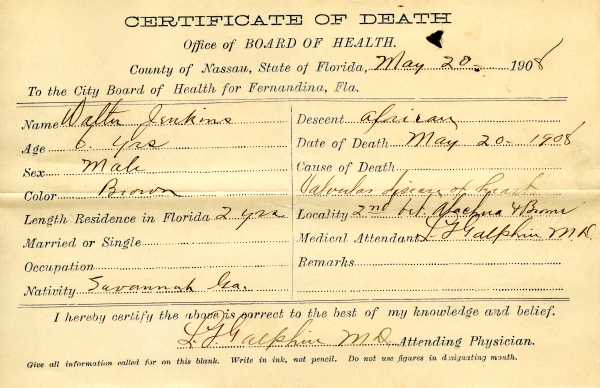 CERTIFICATE OF DEATH
Office of BOARD OF HEALTH.
County of Nassau, State of Florida, May 20 - 1908
To the City Board of Health for Fernandina, Fla.
Name Walter Jenkins
Age 6. yrs
Sex Male
Color Brown
Length Residence in Florida 2 yrs
Married or Single
Occupation
Nativity Savannah Ga.
Descent African
Date of Death May 20 - 1908
Cause of Death
Valvular disease of heart
Locality 2nd bet. Alachua & Broome
Medical Attendant L. F. Galphin M.D.
Remarks
I hereby certify the above is correct to the best of my knowledge and belief.
L. F. Galphin M D. Attending Physician.
Give all information called for on this blank. Write in ink, not pencil. Do not use figures in designating month.